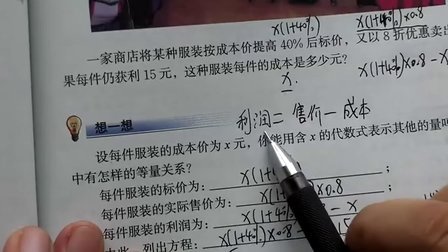 x(1+40%)
x(1+40%)×0.8
一家商店将某种服装按成本价提高 40% 后标价，又以 8 折优惠卖出
果每件仍获利 15 元，这种服装每件的成本是多少元？
x
x(1+40%)×0.8 - x
利润=售价-成本
想一想
设每件服装的成本价为 x 元，你能用含 x 的代数式表示其他的量吗
中有怎样的等量关系？
每件服装的标价为：x(1+40%)；
每件服装的实际售价为：x(1+40%)×0.8；
每件服装的利润为：
列出方程：